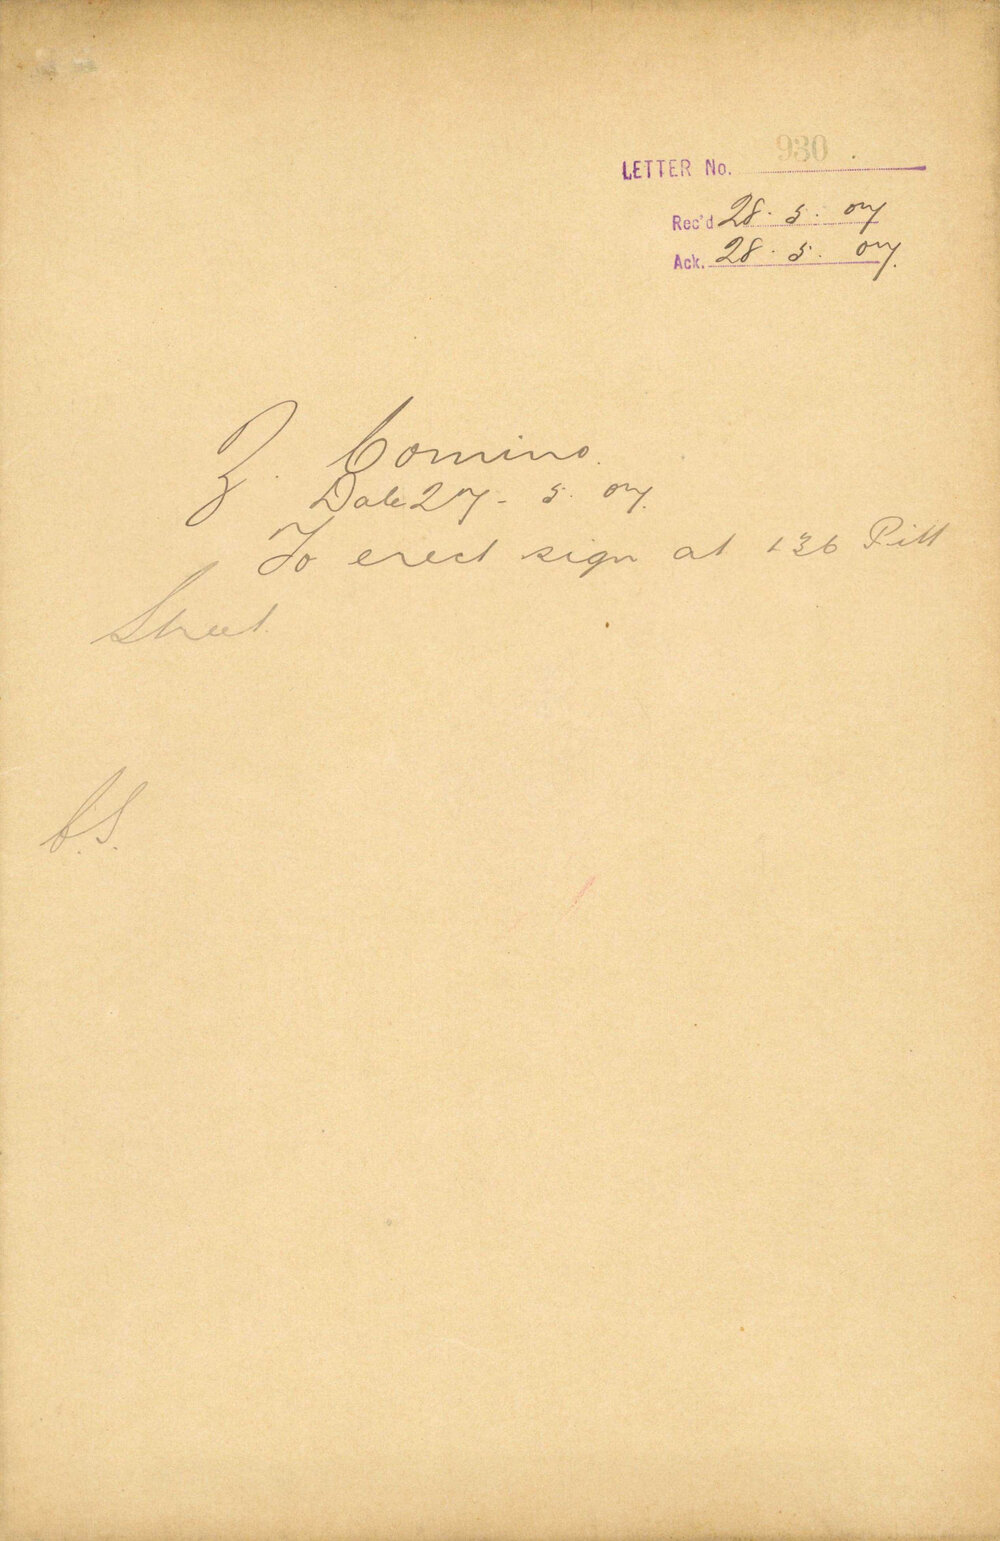 LETTER No. 930
Rec'd 28. 5. 07
Ack. 28. 5. 07.
Z. Comino.
Date 27- 5. 07.
To erect sign at 136 Pitt
Street.
C.S.